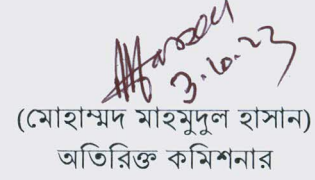 ৩.৬.২৩
(মোহাম্মদ মাহমুদুল হাসান)
অতিরিক্ত কমিশনার